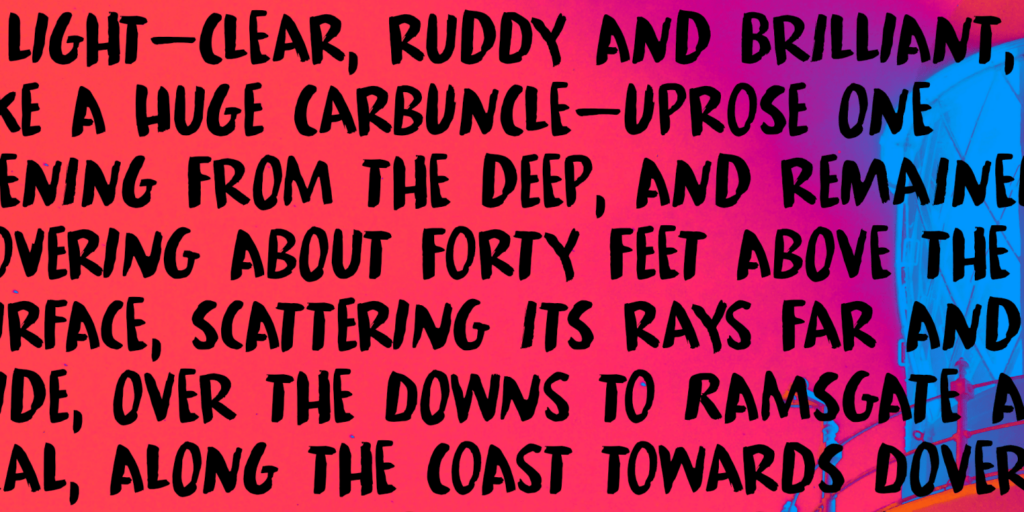 LIGHT—CLEAR, RUDDY AND BRILLIANT,
KE A HUGE CARBUNCLE—UPROSE ONE
ENING FROM THE DEEP, AND REMAINED
OVERING ABOUT FORTY FEET ABOVE THE
URFACE, SCATTERING ITS RAYS FAR AND
IDE, OVER THE DOWNS TO RAMSGATE A
AL, ALONG THE COAST TOWARDS DOVER